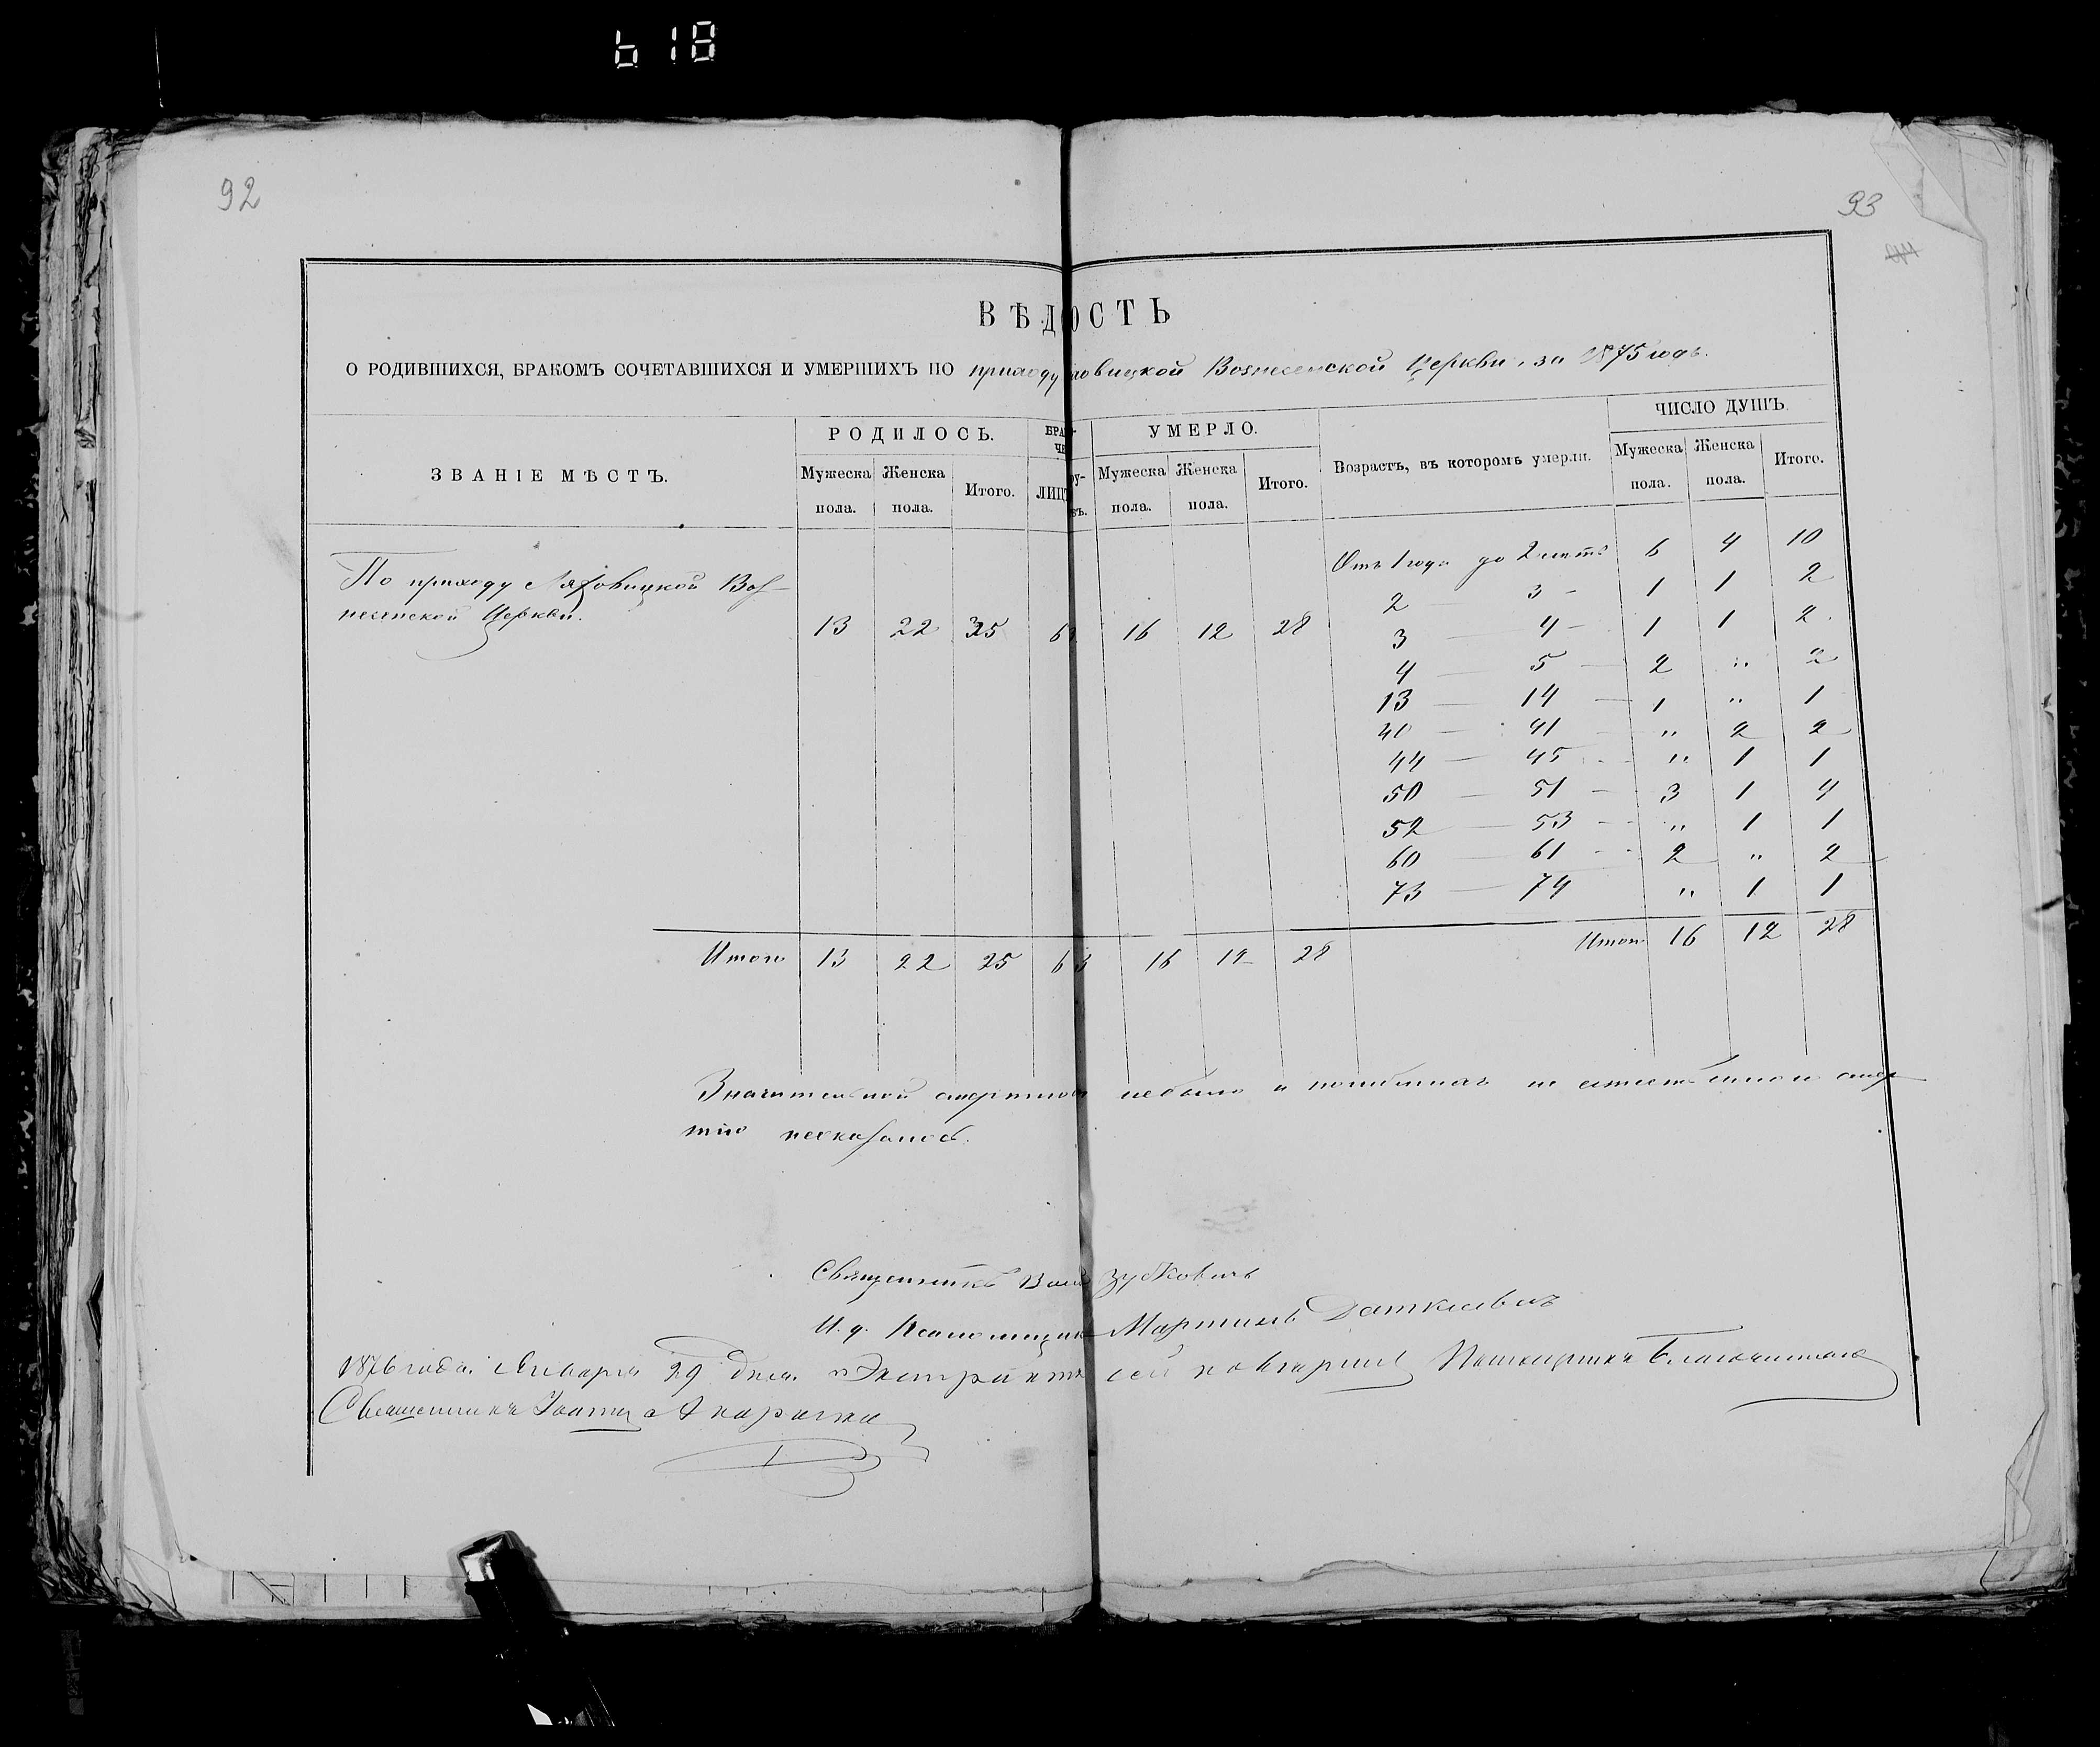 618
92
93
ВѢДОСТЬ
О РОДИВШИХСЯ, БРАКОМЪ СОЧЕТАВШИХСЯ И УМЕРШИХЪ ПО приходу овицкой Вознесенской Церкви, за 1875 годъ.
ЗВАНІЕ МѢСТЪ. РОДИЛОСЬ. УМЕРЛО. Возрастъ, въ которомъ умерли. ЧИСЛО ДУШЪ.
Мужеска пола. Женска пола. Итого. Мужеска пола. Женска пола. Итого. Мужеска пола. Женска пола. Итого.
По приходу Ляховицкой Воз-
несенской Церкви. 13 22 35 6 16 12 28
Отъ 1 года до 2 летъ 6 4 10
2 — 3 — 1 1 2
3 — 4 — 1 1 2
4 — 5 — 2 „ 2
13 — 14 — 1 „ 1
40 — 41 — „ 2 2
44 — 45 — „ 1 1
50 — 51 — 3 1 4
52 — 53 — „ 1 1
60 — 61 — 2 „ 2
73 — 74 „ 1 1
Итого 13 22 35 6 16 12 28 Итого 16 12 28
Значительной смертнос небыло и погибшихъ не естественною смер
тію неоказалось.
Священникъ Зубковичъ
И. д. Псаломщика Мартинъ
1876 года Января 29 дня Экстрактъ сей
Священникъ